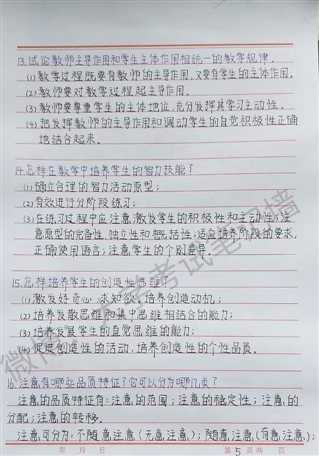 13.试论教师主导作用和学生主体作用相统一的教学规律.
(1)教学过程既要有教师的主导作用,又要有学生的主体作用.
(2)教师要对教学过程起主导作用.
(3)教师要尊重学生的主体地位,充分发挥其学习主动性.
(4)把发挥教师的主导作用和调动学生的自觉积极性正确
地结合起来.
14.怎样在教学中培养学生的智力技能?
(1)确立合理的智力活动原型;
(2)有效进行分阶段练习;
(3)在练习过程中应注意激发学生的积极性和主动性;注
意原型的完备性、独立性和概括性;适应培养阶段的要求,
正确使用语言;注意学生的个别差异.
15.怎样培养学生的创造性思维?
(1)激发好奇心、求知欲,培养创造动机;
(2)培养发散思维和集中思维相结合的能力;
(3)培养发展学生的直觉思维的能力;
(4)促进创造性的活动,培养创造性的个性品质.
16.注意有哪些品质特征?它可以分为哪几类?
注意的品质特征有:注意的范围;注意的稳定性;注意的
分配;注意的转移.
注意可分为:不随意注意(无意注意);随意注意(有意注意);
年 月 日
第5页共 页